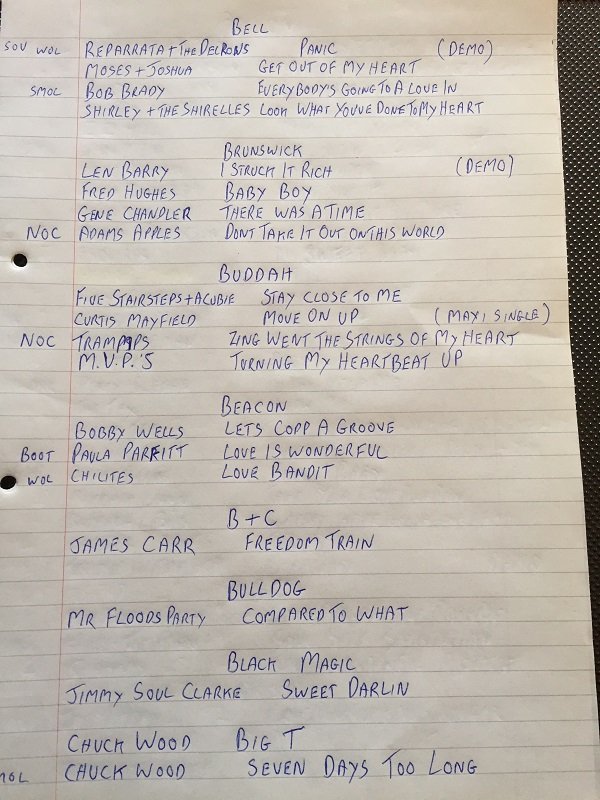 BELL
SOU WOL REPARRATA + THE DELRONS PANIC (DEMO)
MOSES + JOSHUA GET OUT OF MY HEART
SMOL BOB BRADY EVERYBODY'S GOING TO A LOVE IN
SHIRLEY + THE SHIRELLES LOOK WHAT YOUVE DONE TO MY HEART
BRUNSWICK
LEN BARRY I STRUCK IT RICH (DEMO)
FRED HUGHES BABY BOY
GENE CHANDLER THERE WAS A TIME
NOC ADAMS APPLES DONT TAKE IT OUT ON THIS WORLD
BUDDAH
FIVE STAIRSTEPS + CUBIE STAY CLOSE TO ME
CURTIS MAYFIELD MOVE ON UP (MAXI SINGLE)
NOC TRAMMPS ZING WENT THE STRINGS OF MY HEART
M.V.P.'S TURNING MY HEARTBEAT UP
BEACON
BOBBY WELLS LETS COPP A GROOVE
BOOT PAULA PARFITT LOVE IS WONDERFUL
WOL CHILITES LOVE BANDIT
B + C
JAMES CARR FREEDOM TRAIN
BULLDOG
MR FLOODS PARTY COMPARED TO WHAT
BLACK MAGIC
JIMMY SOUL CLARKE SWEET DARLIN
CHUCK WOOD BIG T
MOL CHUCK WOOD SEVEN DAYS TOO LONG